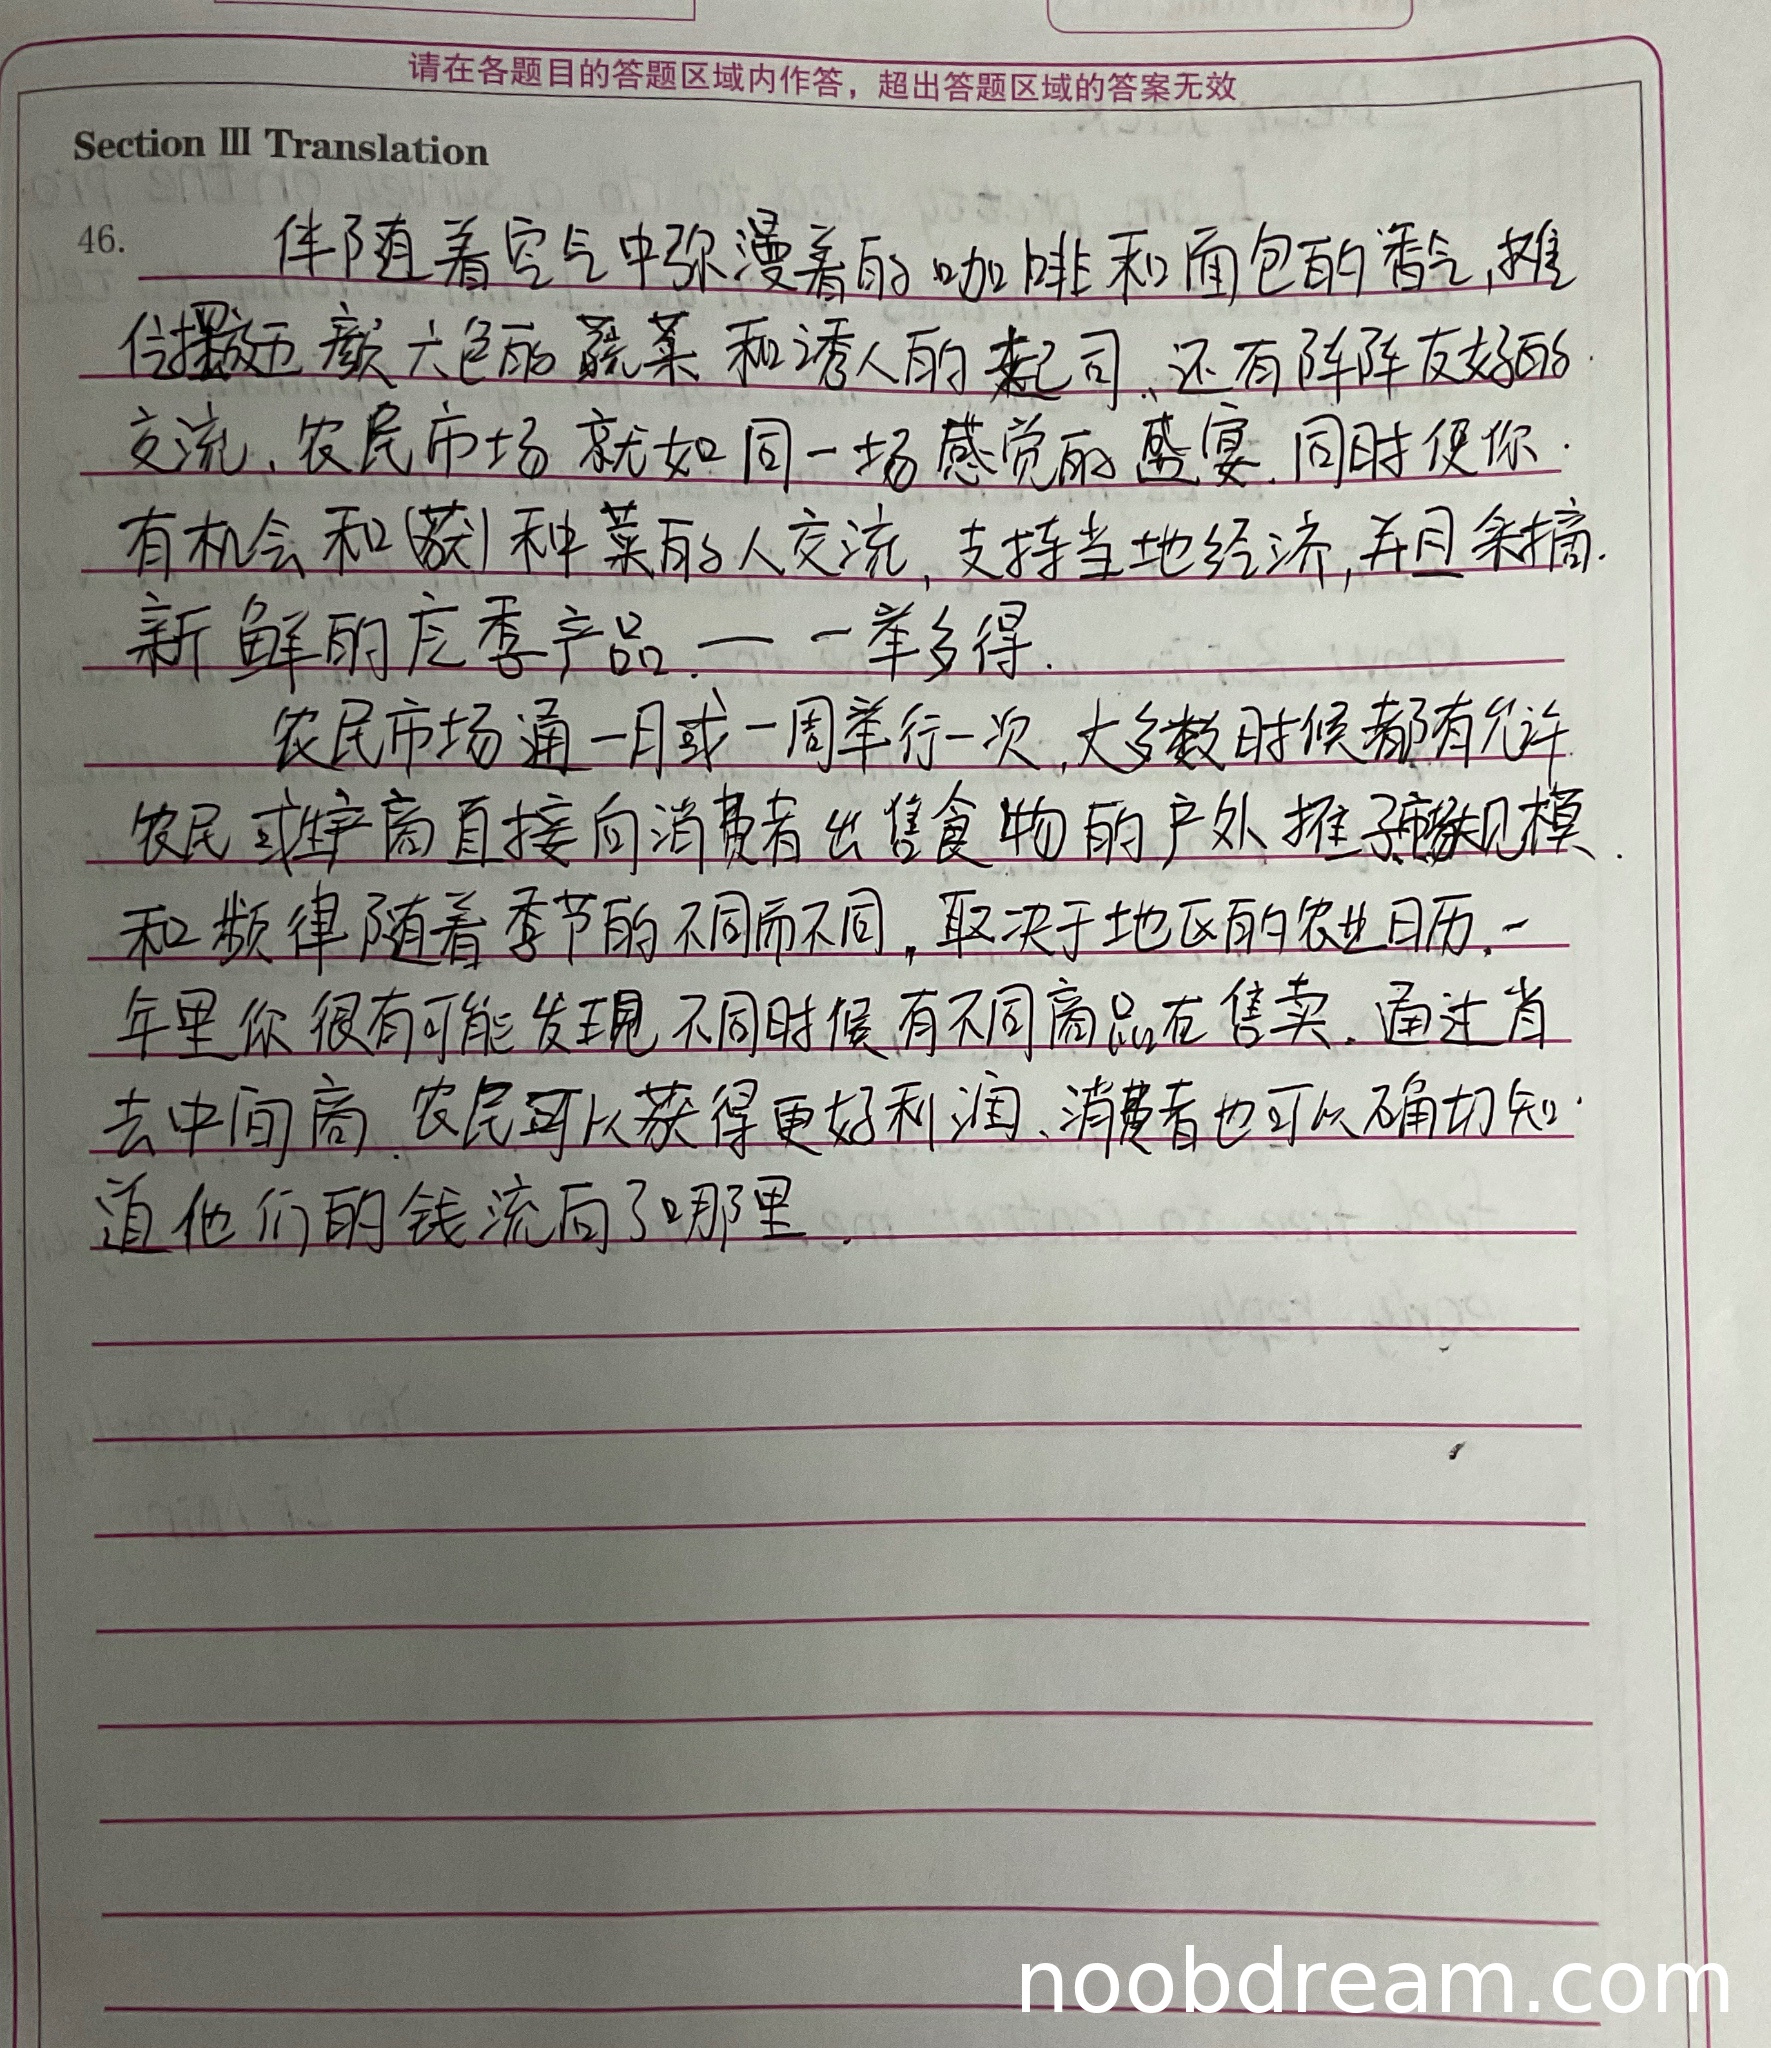 请在各题目的答题区域内作答，超出答题区域的答案无效
Section Ⅲ Translation
46. 伴随着空气中弥漫着的咖啡和面包的香气，摊
位摆放五颜六色的蔬菜和诱人的起司、还有阵阵友好的
交流、农民市场就如同一场感觉的盛宴.同时使你
有机会和种菜的人交流，支持当地经济，并且采摘
新鲜的应季产品.一 一举多得.
农民市场通一月或一周举行一次，大多数时候都有允许
农民或生产商直接向消费者出售食物的户外摊子规模
和频律随着季节的不同而不同，取决于地区的农业日历.一
年里你很有可能发现不同时候有不同商品在售卖.通过省
去中间商.农民可以获得更好利润、消费者也可以确切知
道他们的钱流向了哪里.
noobdream.com